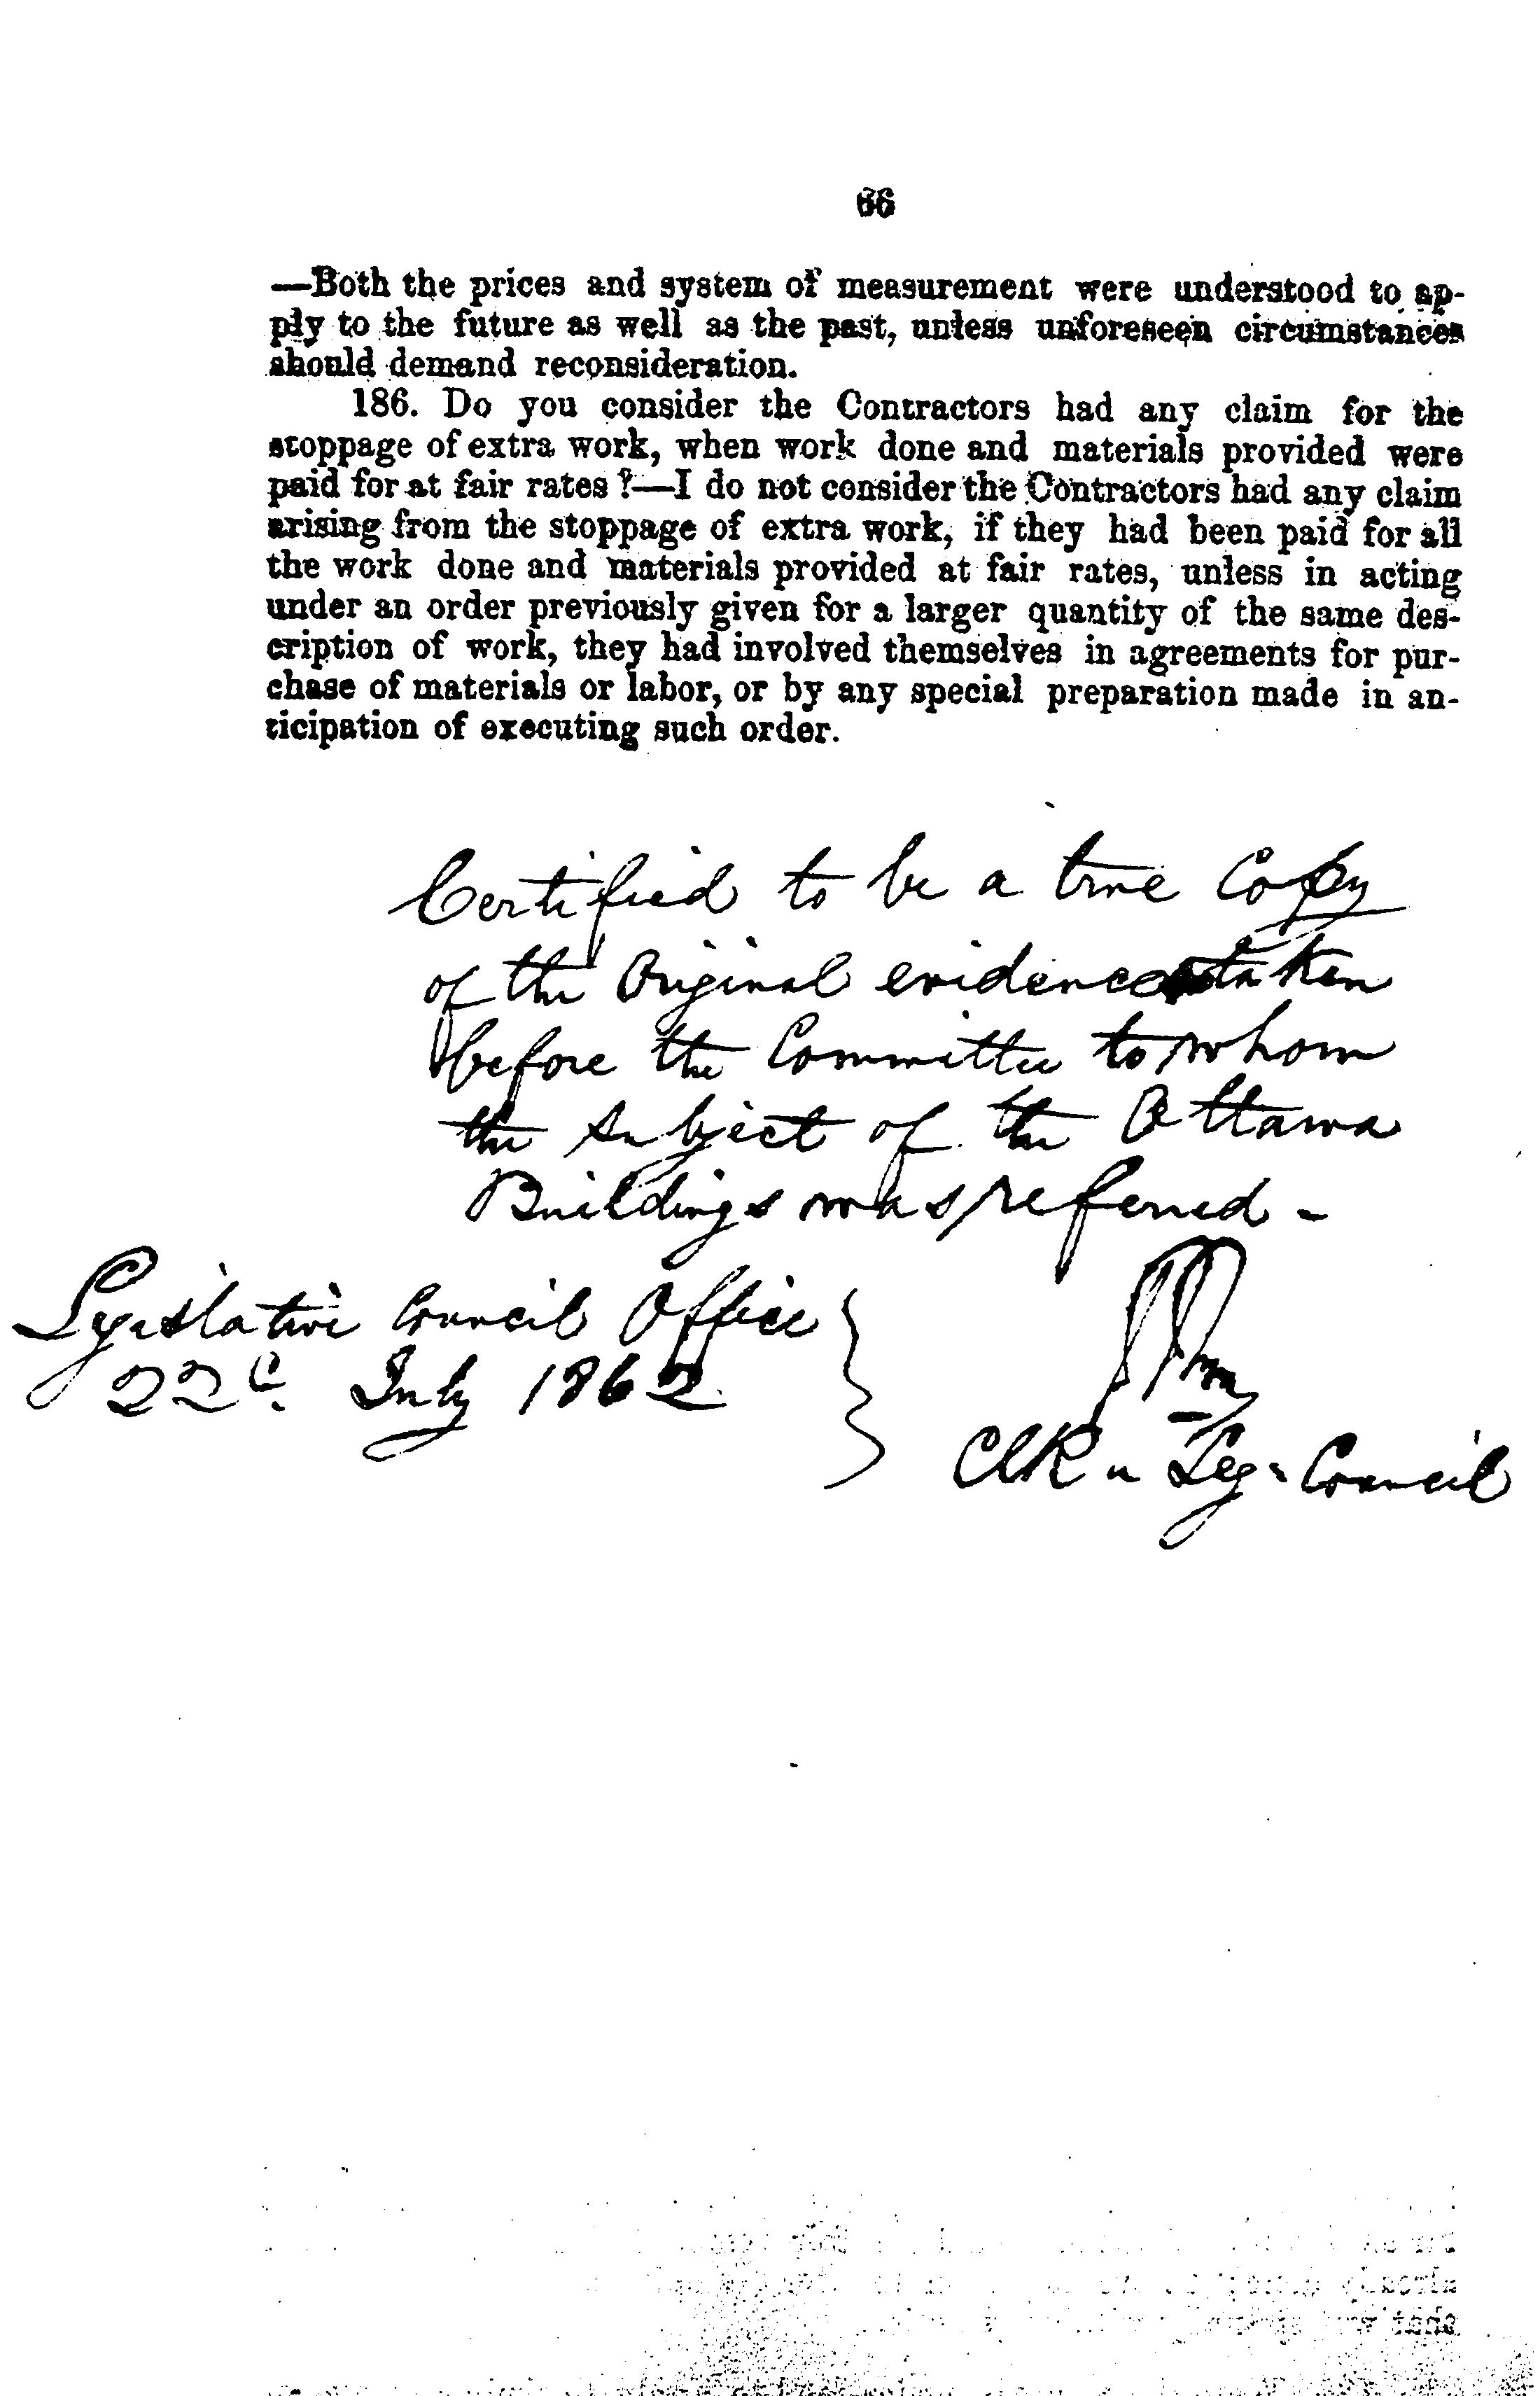 66
—Both the prices and system of measurement were understood to ap-
ply to the future as well as the past, unless unforeseen circumstances
should demand reconsideration.
186. Do you consider the Contractors had any claim for the
stoppage of extra work, when work done and materials provided were
paid for at fair rates?—I do not consider the Contractors had any claim
arising from the stoppage of extra work, if they had been paid for all
the work done and materials provided at fair rates, unless in acting
under an order previously given for a larger quantity of the same des-
cription of work, they had involved themselves in agreements for pur-
chase of materials or labor, or by any special preparation made in an-
ticipation of executing such order.
Certified to be a true Copy
of the Original evidence taken
before the Committee to whom
the subject of the Ottawa
Buildings was referred -
Legislative Council Office
22d. July 1862
Clk Leg. Council